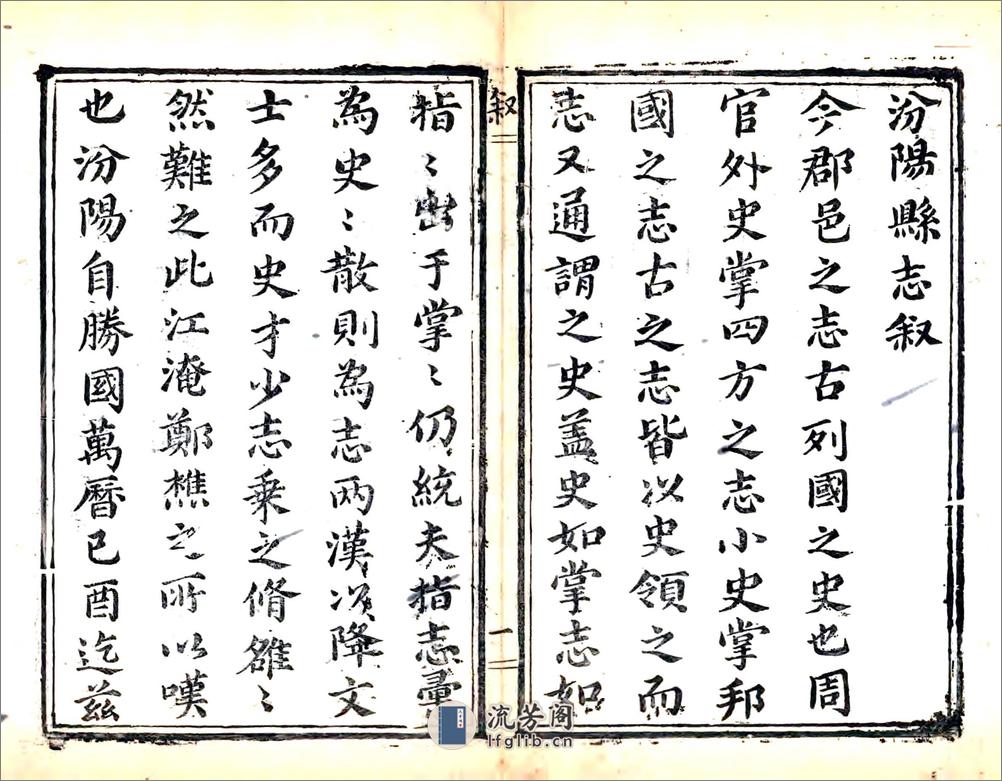 汾陽縣志叙
今郡邑之志古列國之史也周
官外史掌四方之志小史掌邦
國之志古之志皆以史領之而
志又通謂之史盖史如掌志如
叙
一
指〻出于掌〻仍統夫指志彚
為史〻散則為志兩漢以降文
士多而史才少志乗之脩雖〻
然難之此江淹鄭樵之所以嘆
也汾陽自勝國萬曆已酉迄兹
流芳阁
lfglib.cn